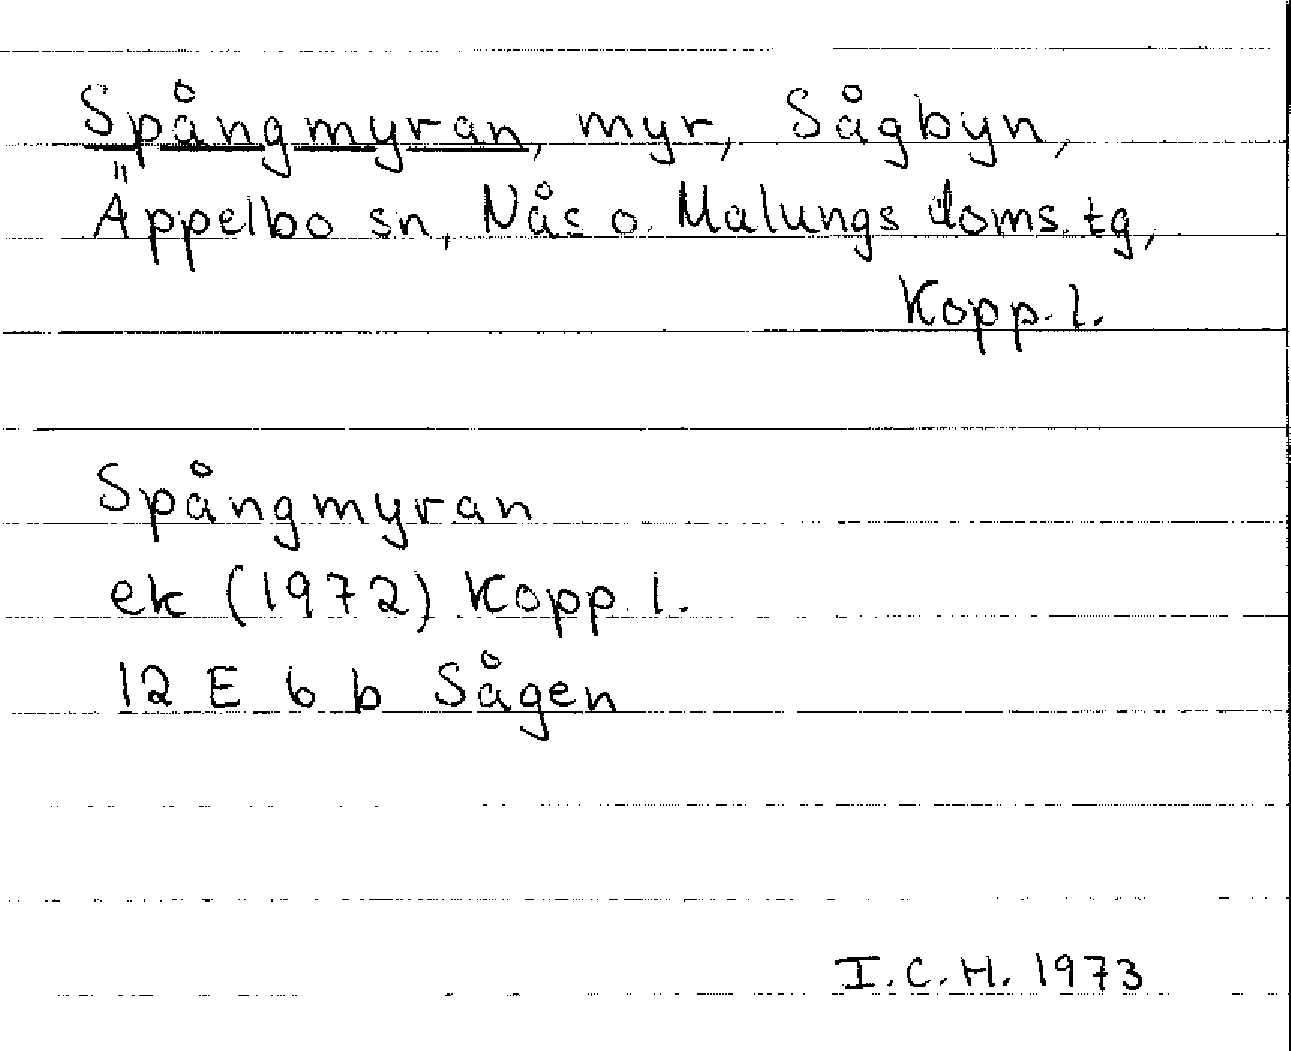 Spångmyran, myr, Sågbyn,
Äppelbo sn, Nås o. Malungs doms.tg,
Kopp. l.
Spångmyran
ek (1972) Kopp. l.
12 E 6 b Sågen
I.C.H. 1973